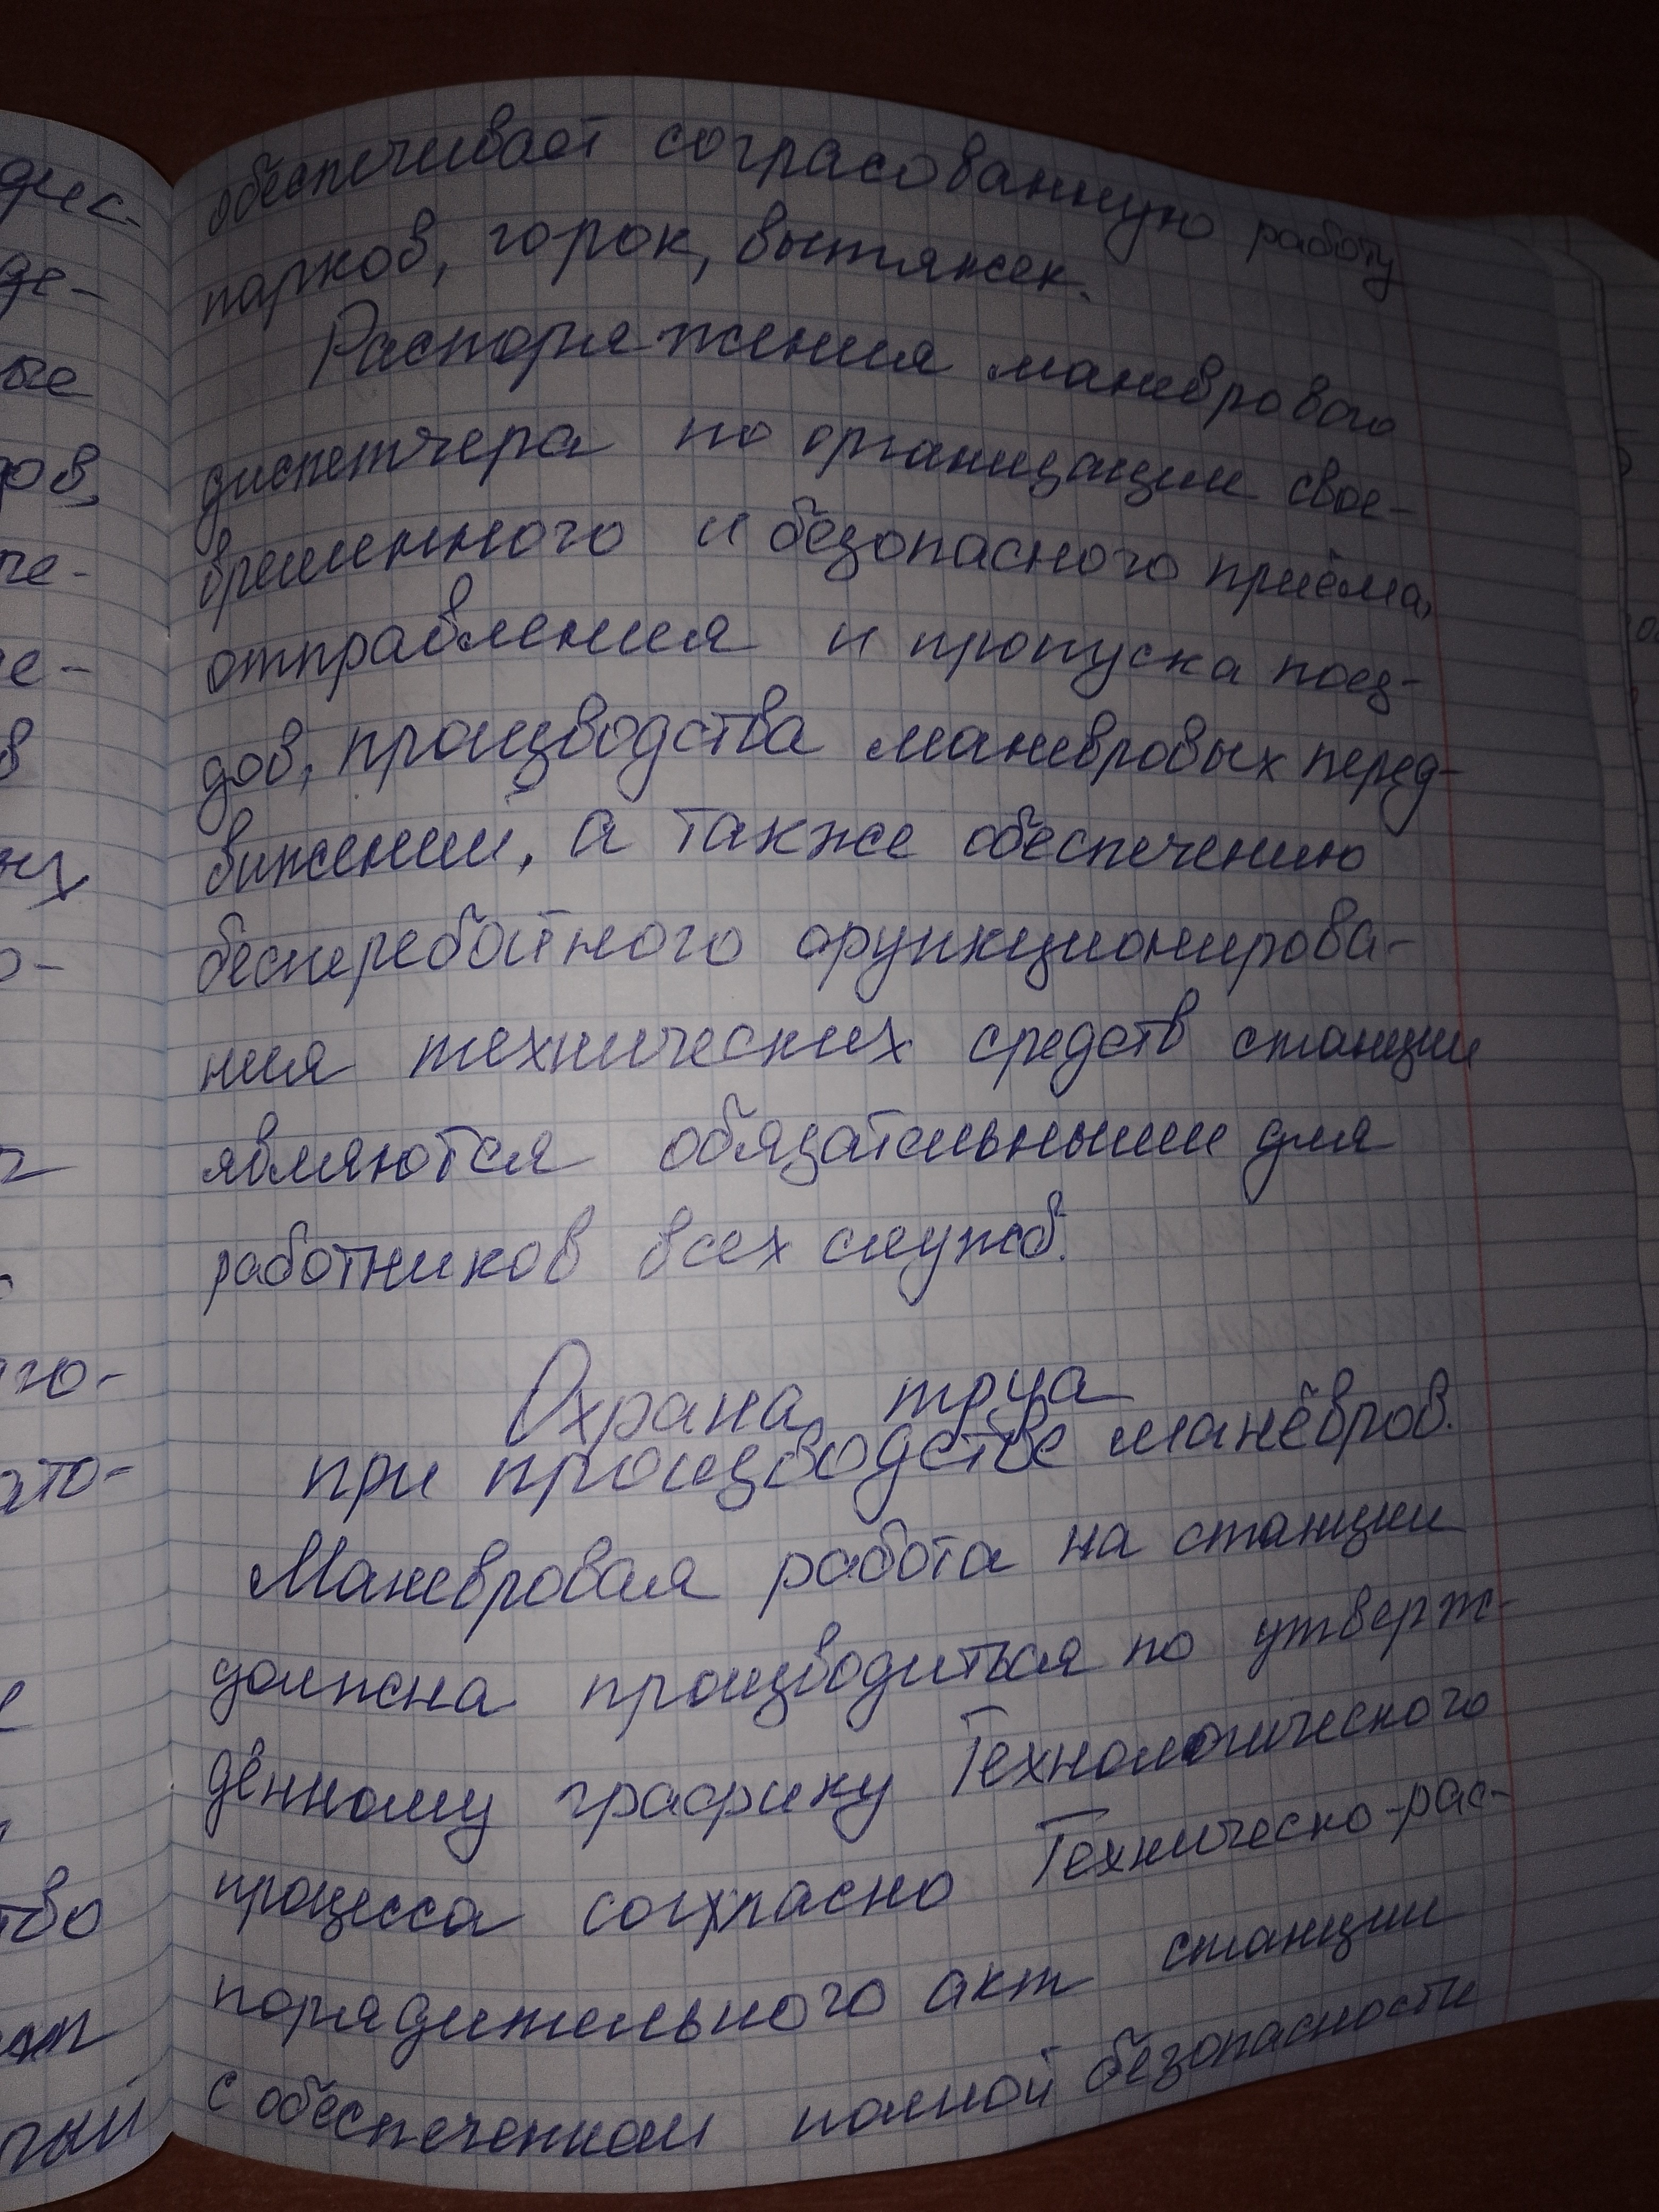 обеспечивает сограсованную работу
парков, горок, вытяжек.
Распоряжения маневрового
диспетчера по организации свое-
временного и безопасного приёма,
отправления и пропуска поез-
дов, производства маневровых перед-
вижений, а также обеспечению
бесперебойного функционирова-
ния технических средств станции
являются обязательными для
работников всех служб.
Охрана труа
при производстве манёвров.
Маневровая работа на станции
должна производиться по утверж-
дённому графику Технологического
процесса согласно Техническо-рас-
порядительного акт станции
с обеспечением полной безопасности